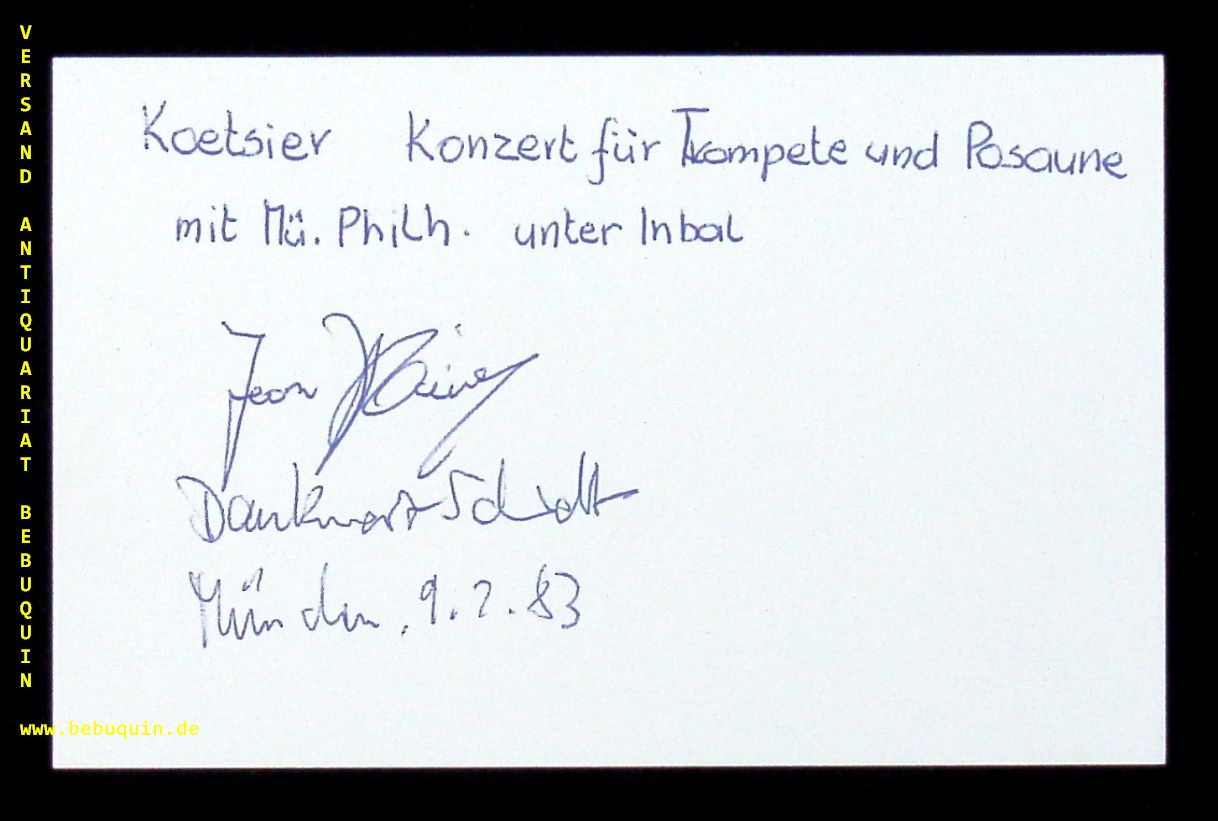 VERSAND ANTIQUARIAT BEBUQUIN
Koetsier Konzert für Trompete und Posaune
mit Mü. Philh. unter Inbal
Jean
Dankwart Schmidt
München, 9.2.83
www.bebuquin.de